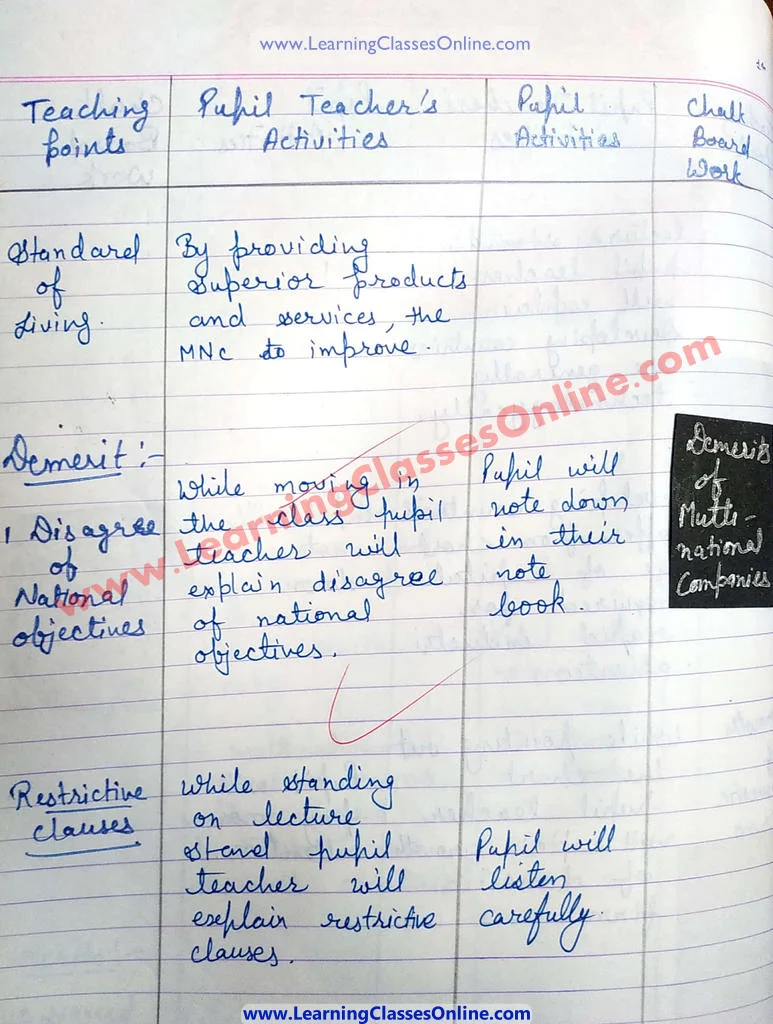 www.LearningClassesOnline.com
Teaching
points
Pupil Teacher's
Activities
Pupil
Activities
Chalk
Board
Work
Standard
of
Living.
By providing
superior products
and services, the
MNC to improve.
Demerit :-
1 Disagree
of
National
objectives
While moving in
the class pupil
teacher will
explain disagree
of national
objectives.
Pupil will
note down
in their
note
book.
Demerits
of
Multi-
national
Companies
www.LearningClassesOnline.com
Restrictive
clauses
While standing
on lecture
stand pupil
teacher will
explain restrictive
clauses.
Pupil will
listen
carefully.
www.LearningClassesOnline.com